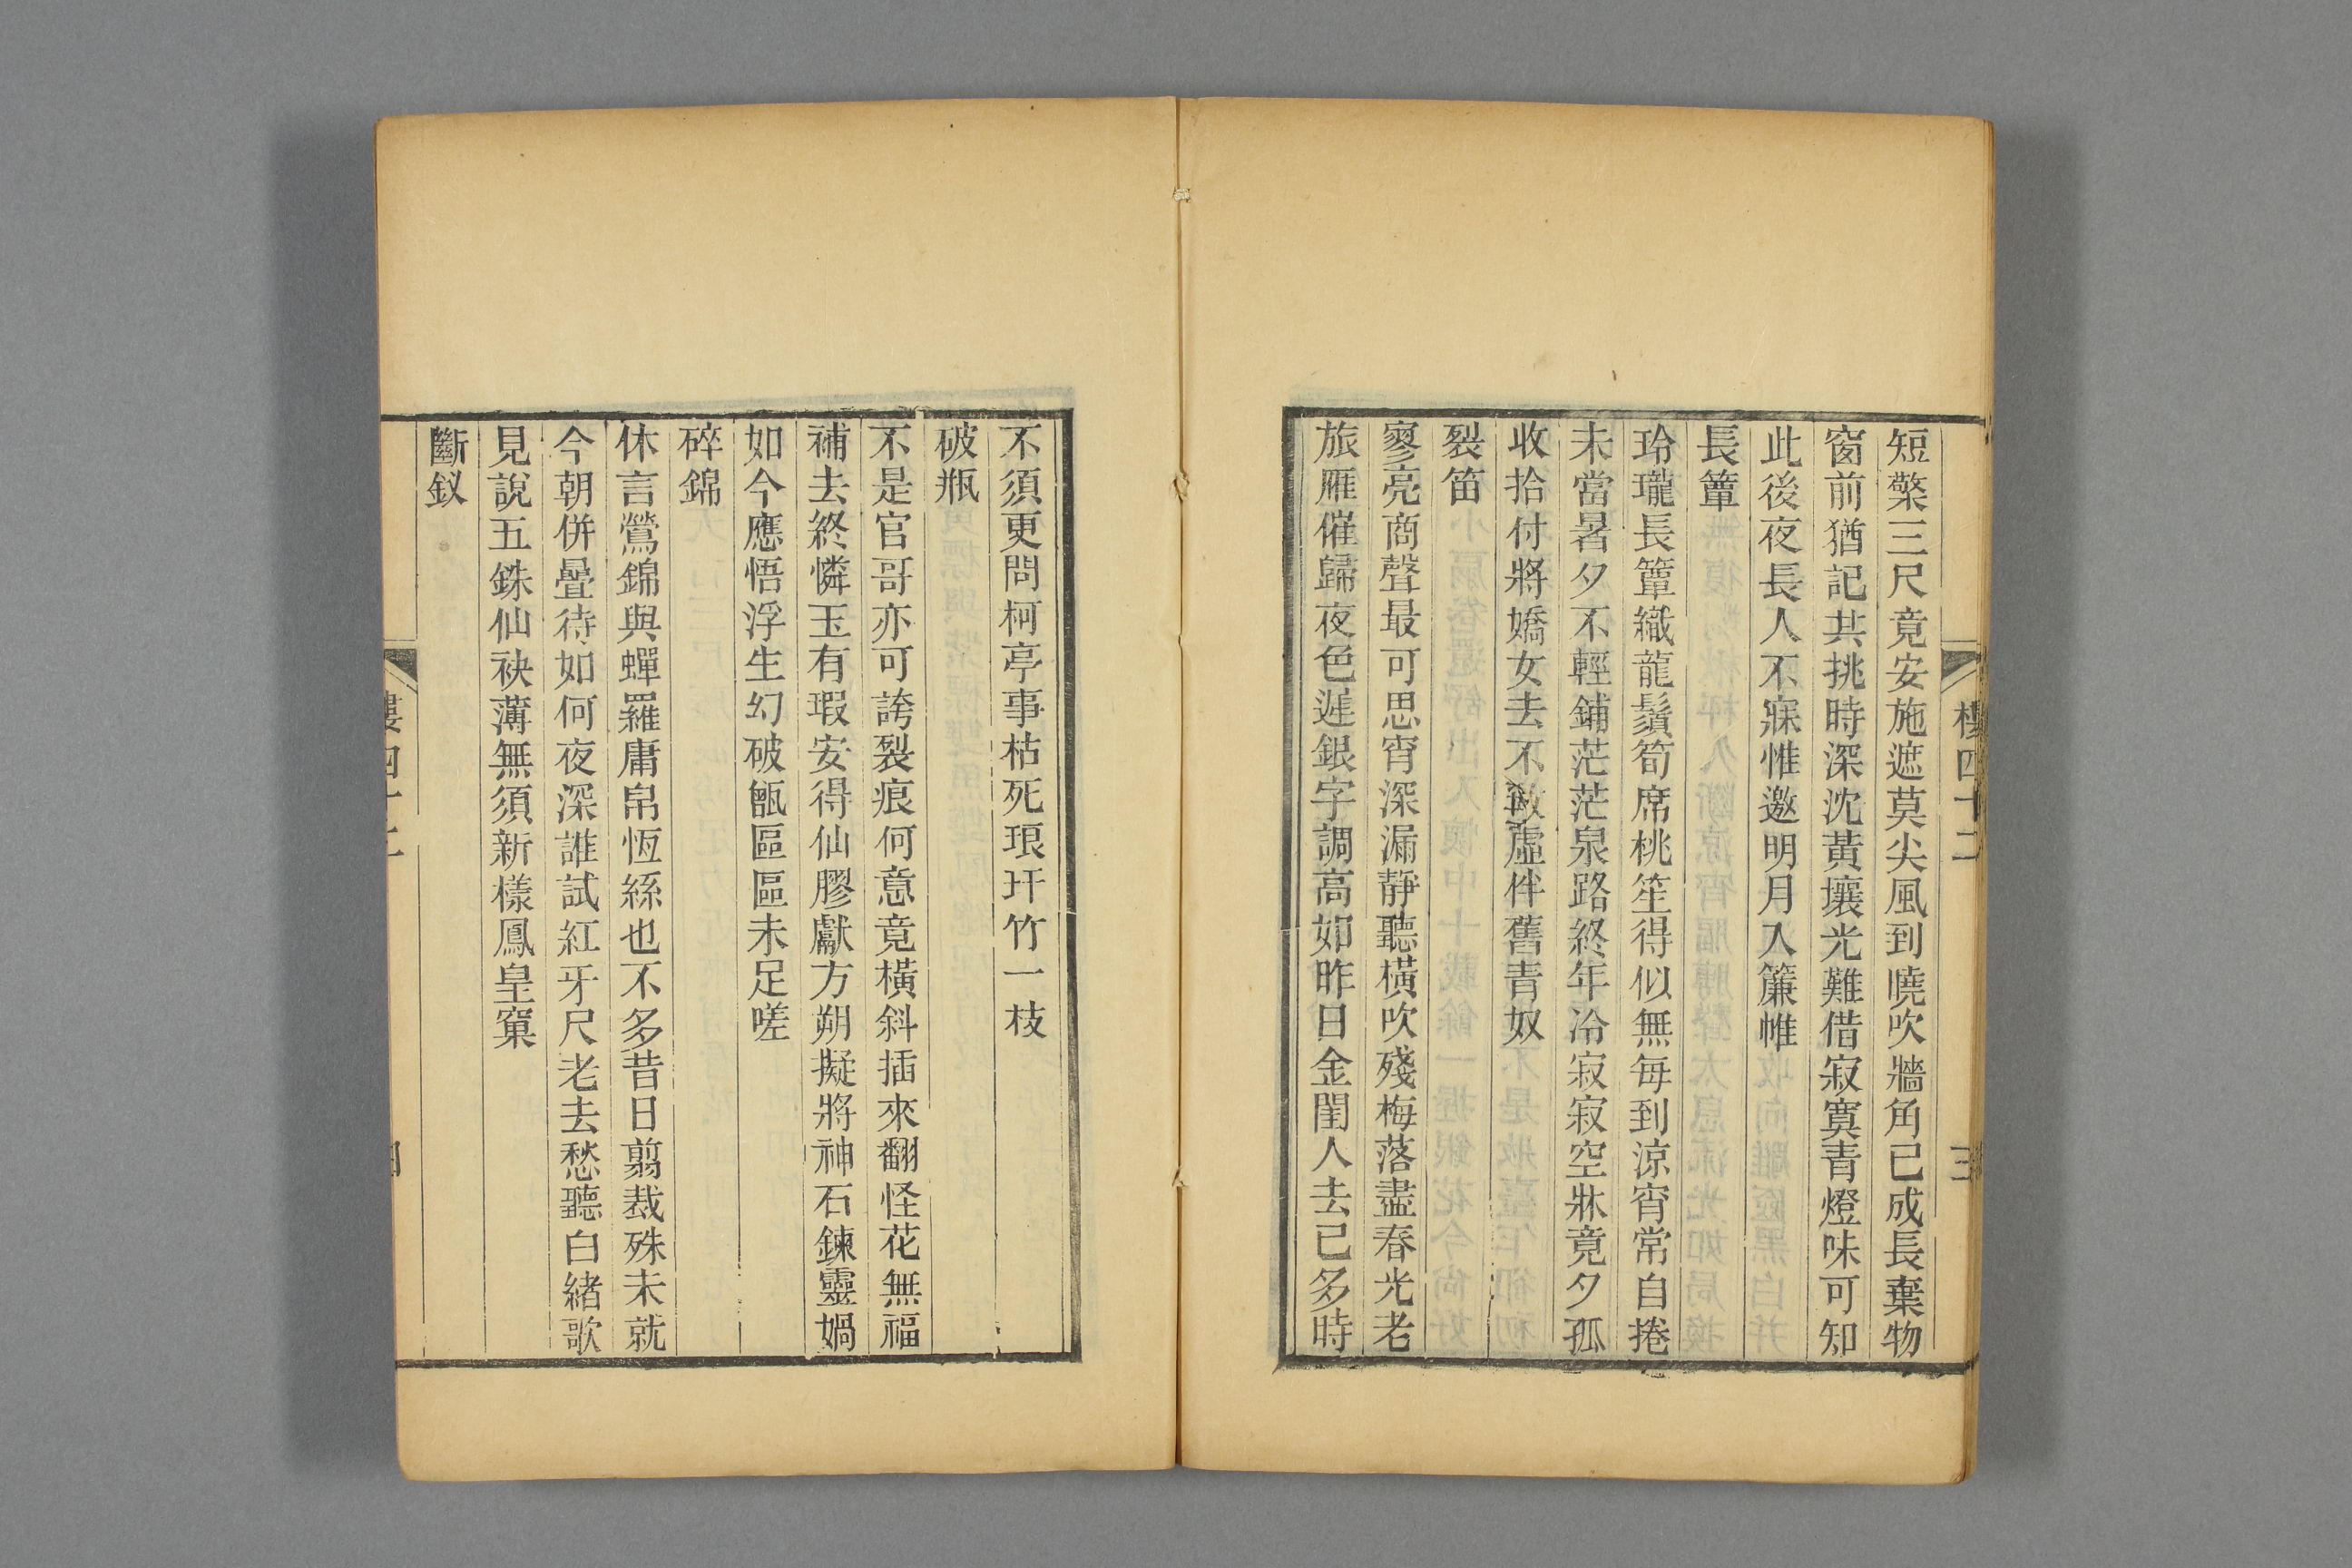 樓四十二 三
短檠三尺竟安施遮莫尖風到曉吹牆角已成長棄物
窗前猶記共挑時深沈黃壤光難借寂寞青燈味可知
此後夜長人不寐惟邀明月入簾帷
長簟
玲瓏長簟織龍鬚筍席桃笙得似無每到涼宵常自捲
未當暑夕不輕鋪茫茫泉路終年冷寂寂空牀竟夕孤
收拾付將嬌女去不敎虛伴舊青奴
裂笛
寥亮商聲最可思宵深漏靜聽橫吹殘梅落盡春光老
旅雁催歸夜色遲銀字調高如昨日金閨人去已多時
不須更問柯亭事枯死琅玕竹一枝
破瓶
不是官哥亦可誇裂痕何意竟橫斜插來翻怪花無福
補去終憐玉有瑕安得仙膠獻方朔擬將神石鍊靈媧
如今應悟浮生幻破甑區區未足嗟
碎錦
休言鶯錦與蟬羅庸帛恆絲也不多昔日翦裁殊未就
今朝併疊待如何夜深誰試紅牙尺老去愁聽白緒歌
見說五銖仙袂薄無須新樣鳳皇窠
斷釵
樓四十二 四